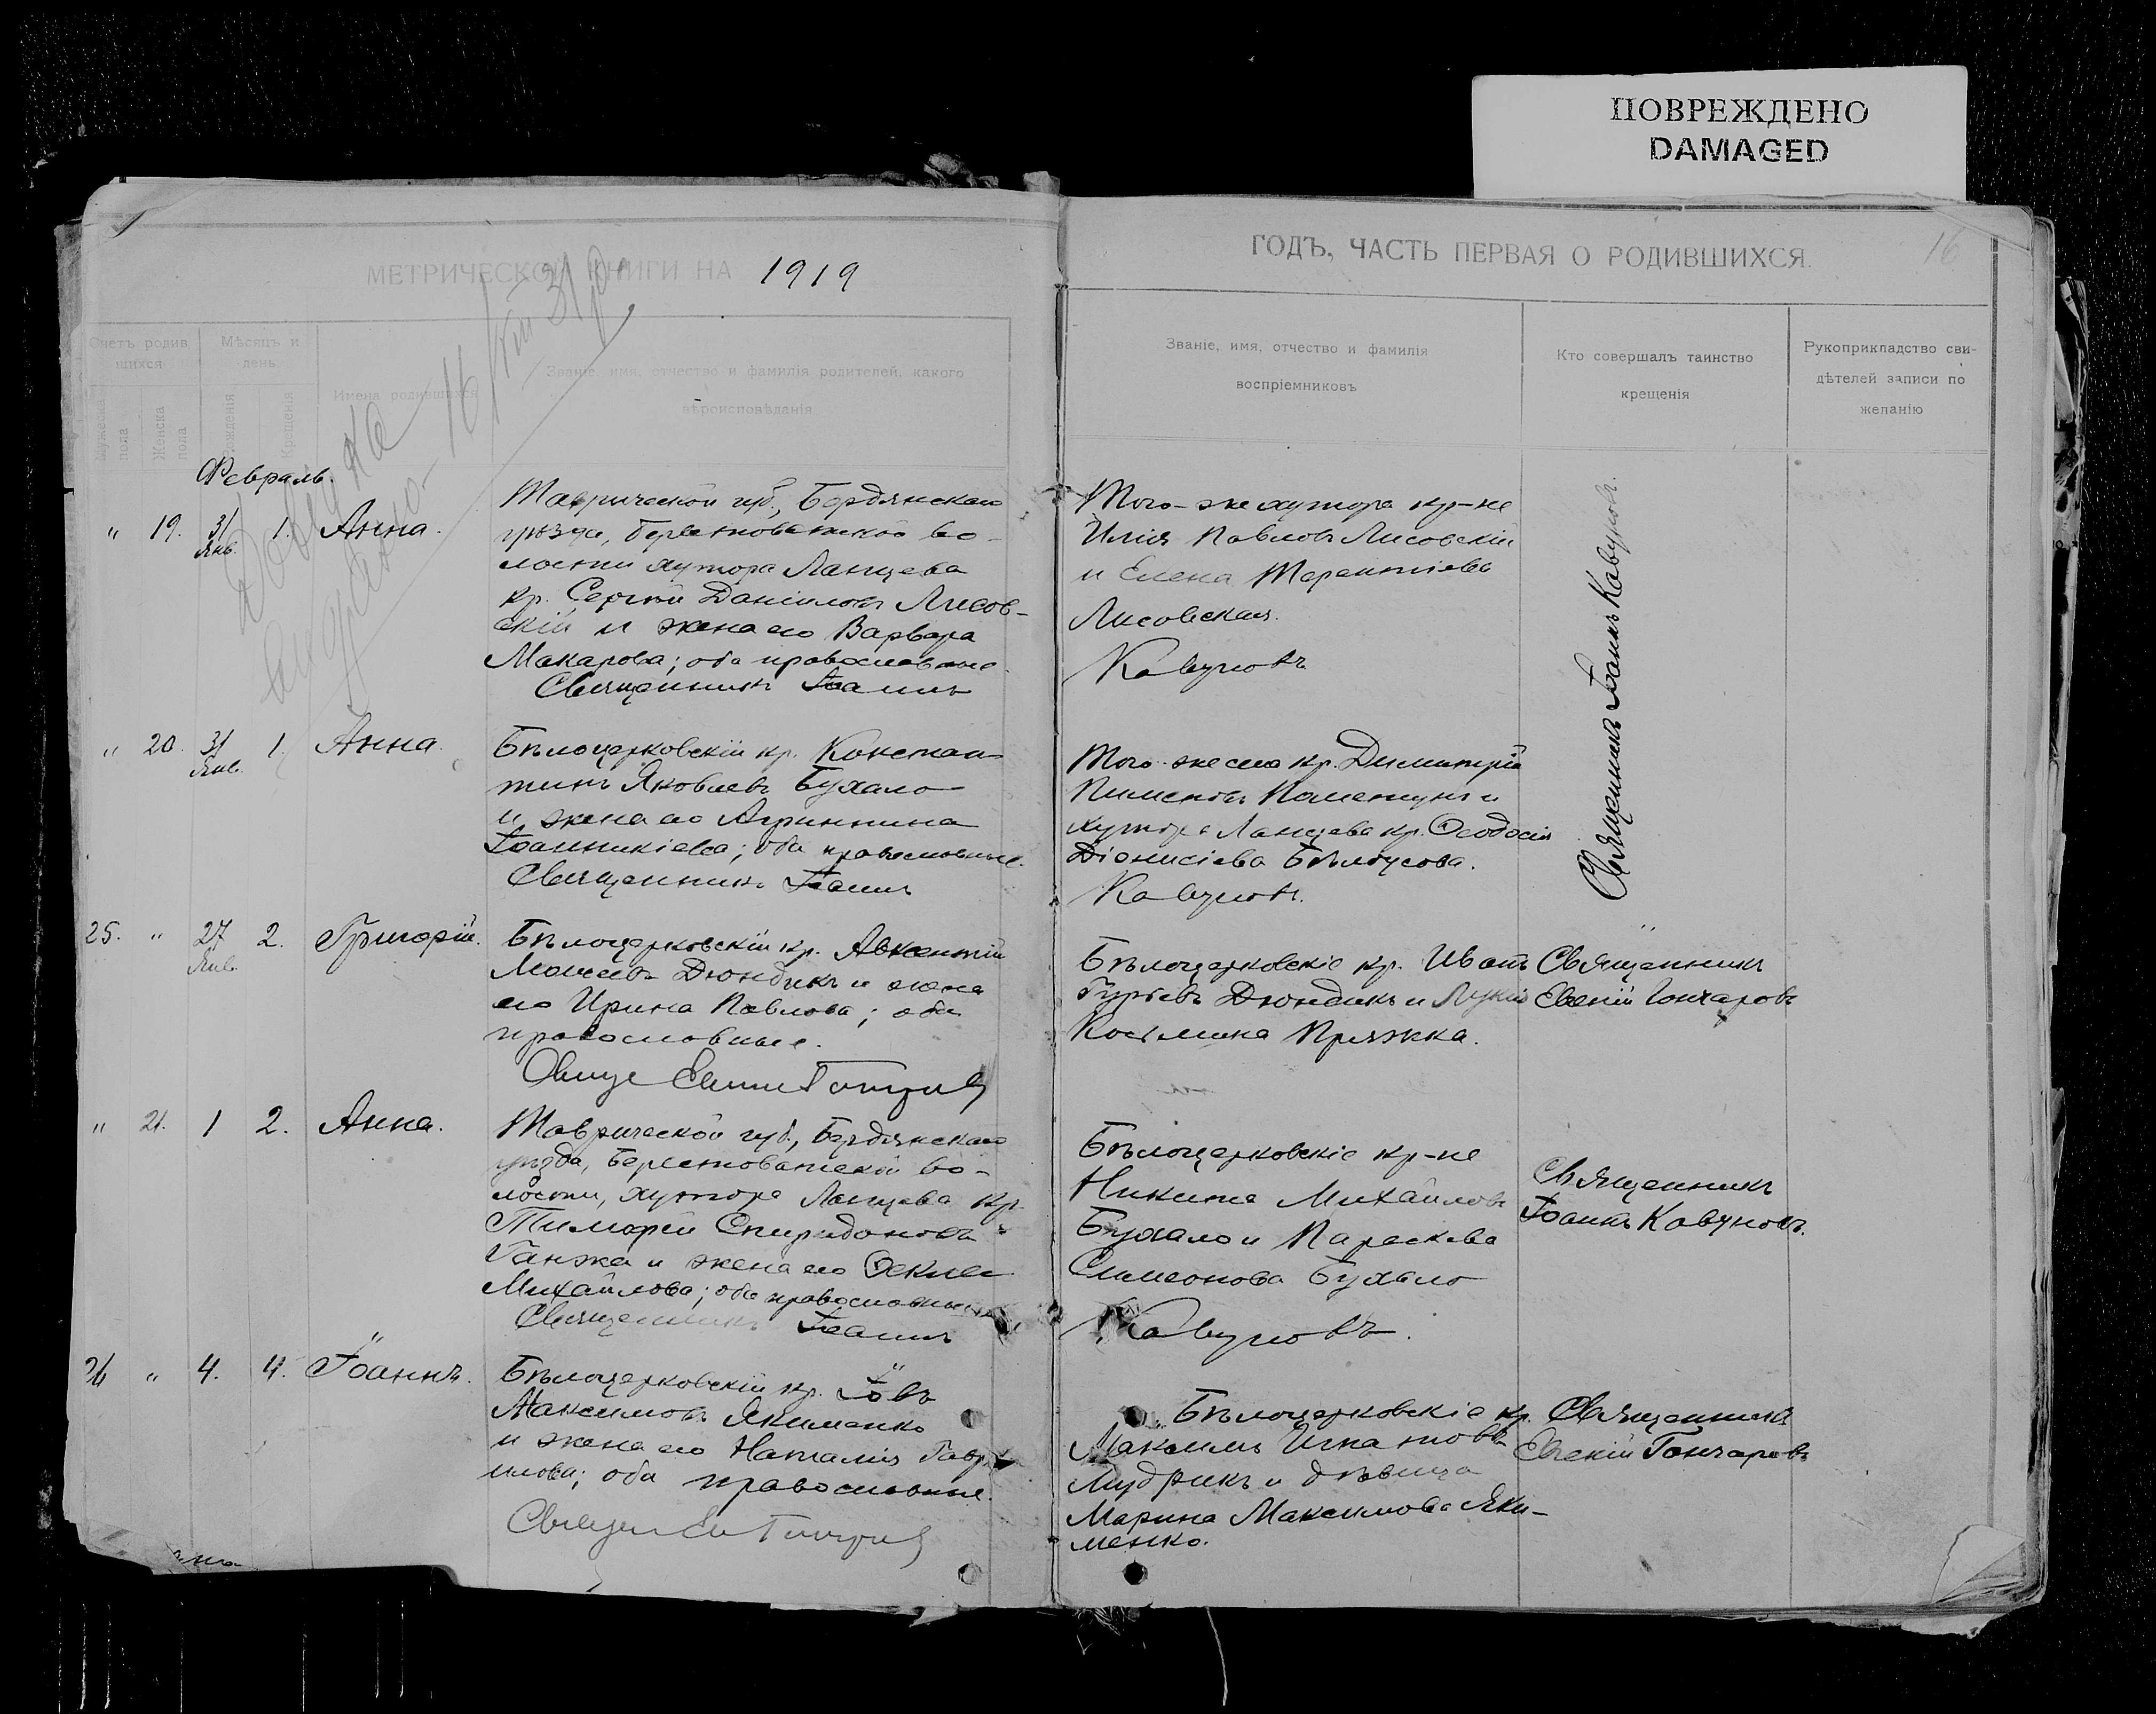 ПОВРЕЖДЕНО
DAMAGED
МЕТРИЧЕСКОЙ КНИГИ НА 1919
Счетъ родив
шихся
Мѣсяцъ и
день
Мужеска
пола
Женска
пола
Рожденія
Крещенія
Имена родившихся
Званіе, имя, отчество и фамилія родителей, какого
вѣроисповѣданія
Февраль.
" 19. 31 Янв. 1. Анна.
Таврической губ., Бердянскаго
уѣзда, Берестоватской во-
лости хутора Ланцева
кр. Сергѣй Даніиловъ Лисов-
скій и жена его Варвара
Макарова; оба православные
Священникъ Іоаннъ
" 20. 31 Янв. 1. Анна.
Бѣлоцерковскій кр. Констан-
тинъ Яковлевъ Бухало
и жена его Агриппина
Іоанникіева; оба православные.
Священникъ Іоаннъ
25. " 27 Янв. 2. Григорій.
Бѣлоцерковскій кр. Авксентій
Моисеевъ Дюндикъ и жена
его Ирина Павлова; оба
православные.
" 21. 1 2. Анна.
Таврической губ., Бердянскаго
уѣзда, Берестоватской во-
лости, хутора Ланцева кр.
Тимофей Спиридоновъ
Ганжа и жена его Ѳекла
Михайлова; оба православные
Священникъ Іоаннъ
26 " 4. 4. Іоаннъ.
Бѣлоцерковскій кр. Іовъ
Максимовъ Якименко
и жена его Наталія Гавр-
илова; оба православные.
16
ГОДЪ, ЧАСТЬ ПЕРВАЯ О РОДИВШИХСЯ.
Званіе, имя, отчество и фамилія
воспріемниковъ
Кто совершалъ таинство
крещенія
Рукоприкладство сви-
дѣтелей записи по
желанію
Того-же хутора кр-не
Илія Павловъ Лисовскій
и Елена Терентіева
Лисовская.
Кавуновъ
Священникъ Іоаннъ Кавуновъ.
Того-же села кр. Димитрій
Пименовъ и
хутора Ланцева кр. Ѳеодосія
Діонисіева Бѣлоусова.
Кавуновъ.
Бѣлоцерковскіе кр. Иванъ
Гурьевъ Дюндикъ и Лукія
Косьмина Пряжка.
Священникъ
Евгеній Гончаровъ
Бѣлоцерковскіе кр-не
Никита Михайловъ
Бухало и Параскева
Симеонова Бухало
Кавуновъ.
Священникъ
Іоаннъ Кавуновъ.
Бѣлоцерковскіе кр.
Максимъ Игнатовъ
Мудрикъ и дѣвица
Марина Максимова Яки-
менко.
Священникъ
Евгеній Гончаровъ